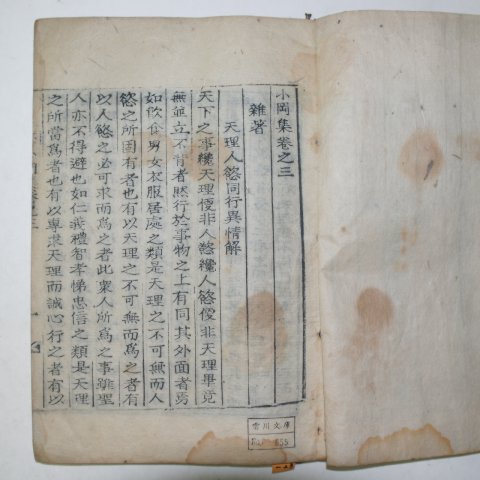 小岡集卷之三
雜著
天理人慾同行異情解
天下之事纔天理便非人慾纔人慾便非天理畢竟
無並立不背者然行於事物之上有同其外面者焉
如飮食男女衣服居處之類是天理之不可無而人
慾之所固有者也有以天理之不可無而爲之者有
以人慾之必可求而爲之者此衆人所爲之事雖聖
人亦不得避也如仁義禮智孝悌忠信之類是天理
之所當爲者也有以專求天理而誠心行之者有以
雪川文庫